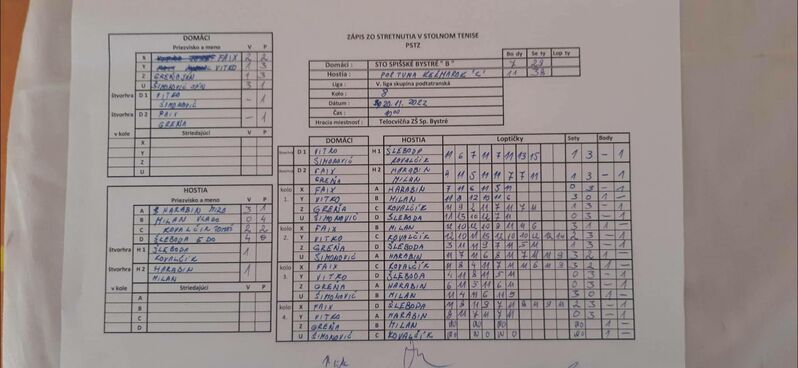 DOMÁCI
Priezvisko a meno V P
X FAIX 2 2
Y VITRO 1 3
Z GREŇA JÁN 1 3
U ŠIMONOVIČ 3 1
štvorhra D 1 VITRO - 1
ŠIMONOVIČ
štvorhra D 2 FAIX - 1
GREŇA
v kole Striedajúci
X
Y
Z
U
HOSTIA
Priezvisko a meno V P
A HARABIN MIRO 3 1
B MILAN VLADO 0 4
C KOVALČÍK TOMÁŠ 2 2
D ŠLEBODA EDO 4
štvorhra H 1 ŠLEBODA 1
KOVALČÍK
štvorhra H 2 HARABIN 1
MILAN
v kole Striedajúci
A
B
C
D
ZÁPIS ZO STRETNUTIA V STOLNOM TENISE
PSTZ
Bo dy Se ty Lop ty
Domáci : STO SPIŠSKÉ BYSTRÉ " B " 7 29
Hostia : FORTUNA KEŽMAROK "C" 11 38
Liga : V. liga skupina podtatranská
Kolo : 8
Dátum : 20.11.2022
Čas : 10 00
Hracia miestnosť : Telocvičňa ZŠ Sp. Bystré
DOMÁCI HOSTIA Loptičky Sety Body
D 1 VITRO H 1 ŠLEBODA 11 6 7 11 7 11 13 15 1 3 - 1
ŠIMONOVIČ KOVALČÍK
D 2 FAIX H 2 HARABIN 11 5 11 11 7 7 11 1 3 - 1
GREŇA MILAN
kolo 1.
X FAIX A HARABIN 7 11 6 11 5 11 0 3 - 1
Y VITRO B MILAN 11 8 12 10 11 6 3 0 1 -
Z GREŇA C KOVALČÍK 11 9 2 11 7 11 7 11 1 3 - 1
U ŠIMONOVIČ D ŠLEBODA 13 15 10 12 7 11 0 3 - 1
kolo 2.
X FAIX B MILAN 12 10 12 10 8 11 11 6 3 1 1 -
Y VITRO C KOVALČÍK 12 10 11 13 12 10 10 12 12 14 2 3 - 1
Z GREŇA D ŠLEBODA 3 11 11 9 7 11 5 11 1 3 - 1
U ŠIMONOVIČ A HARABIN 11 7 11 6 8 11 7 11 11 9 3 2 1 -
kolo 3.
X FAIX C KOVALČÍK 11 8 4 11 7 11 11 6 11 9 3 2 1 -
Y VITRO D ŠLEBODA 4 11 8 11 5 11 0 3 - 1
Z GREŇA A HARABIN 6 11 5 11 6 11 0 3 - 1
U ŠIMONOVIČ B MILAN 11 4 11 6 11 9 3 0 1 -
kolo 4.
X FAIX D ŠLEBODA 2 3 - 1
Y VITRO A HARABIN 0 3 - 1
Z GREŇA B MILAN 1 -
U ŠIMONOVIČ C KOVALČÍK 1 -